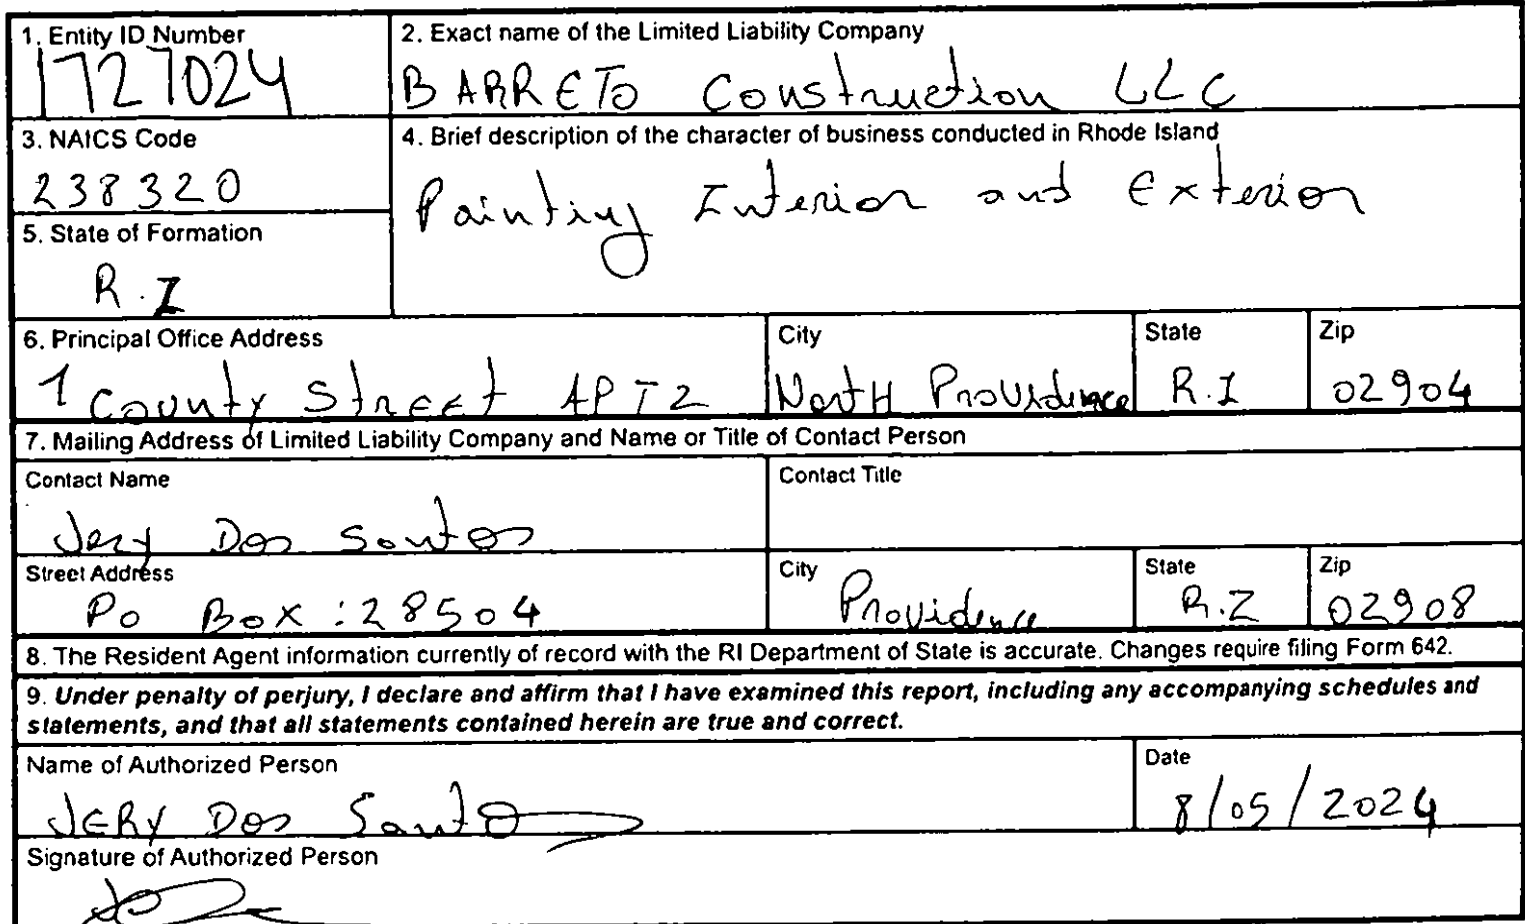 1. Entity ID Number
1727024
2. Exact name of the Limited Liability Company
BARRETO Construction LLC
3. NAICS Code
238320
4. Brief description of the character of business conducted in Rhode Island
Painting Interior and Exterior
5. State of Formation
R.I
6. Principal Office Address
1 County Street APT 2
City
North Providence
State
R.I
Zip
02904
7. Mailing Address of Limited Liability Company and Name or Title of Contact Person
Contact Name
Jery Dos Santos
Contact Title
Street Address
Po Box : 28504
City
Providence
State
R.I
Zip
02908
8. The Resident Agent information currently of record with the RI Department of State is accurate. Changes require filing Form 642.
9. Under penalty of perjury, I declare and affirm that I have examined this report, including any accompanying schedules and
statements, and that all statements contained herein are true and correct.
Name of Authorized Person
JERY Dos Santos
Date
8/05/2024
Signature of Authorized Person